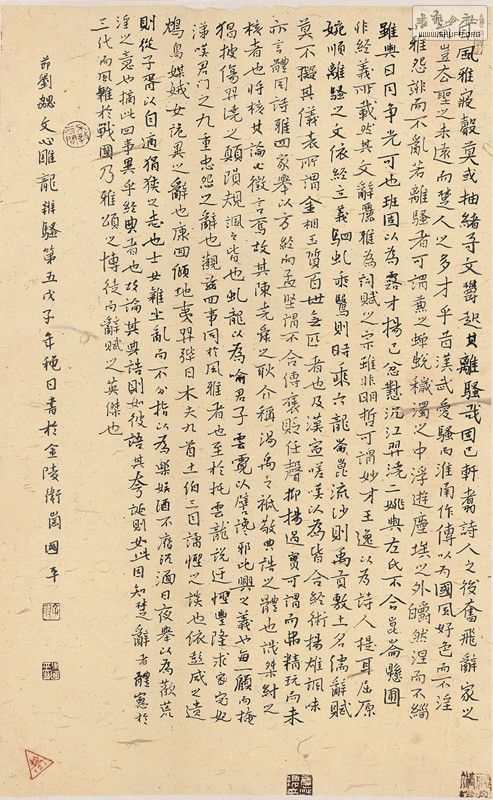 自風雅寢聲莫或抽緒奇文鬱起其離騷哉固已軒翥詩人之後奮飛辭家之
前豈去聖之未遠而楚人之多才乎昔漢武愛騷而淮南作傳以為國風好色而不淫
小雅怨誹而不亂若離騷者可謂兼之蟬蛻穢濁之中浮游塵埃之外皭然涅而不緇
雖與日月爭光可也班固以為露才揚己忿懟沉江羿澆二姚與左氏不合崑崙懸圃
非經義所載然其文辭麗雅為詞賦之宗雖非明哲可謂妙才王逸以為詩人提耳屈原
婉順離騷之文依經立義駟虬乘鷖則時乘六龍崑崙流沙則禹貢敷土名儒辭賦
莫不擬其儀表所謂金相玉質百世無匹者也及漢宣嗟嘆以為皆合經術揚雄諷味
亦言體同詩雅四家舉以方經而孟堅謂不合傳褒貶任聲抑揚過實可謂而弗精玩而未
核者也將核其論必徵言焉故其陳堯舜之耿介稱湯禹之祗敬典誥之體也譏桀紂之
猖披傷羿澆之顛隕規諷之旨也虬龍以為喻君子雲霓以譬讒邪比興之義也每一顧而掩
涕嘆君門之九重忠怨之辭也觀茲四事同於風雅者也至於託雲龍說迂怪豐隆求宓妃
鴆鳥媒娀女詭異之辭也康回傾地夷羿彃日木夫九首土伯三目譎怪之談也依彭咸之遺
則從子胥以自適狷狹之志也士女雜坐亂而不分指以為樂娛酒不廢沉湎日夜舉以為歡荒
淫之意也摘此四事異乎經典者也故論其典誥則如彼語其夸誕則如此固知楚辭者體憲於
三代而風雜於戰國乃雅頌之博徒而辭賦之英傑也
節劉勰文心雕龍辨騷第五戊子年秋日書於金陵衛崗國平